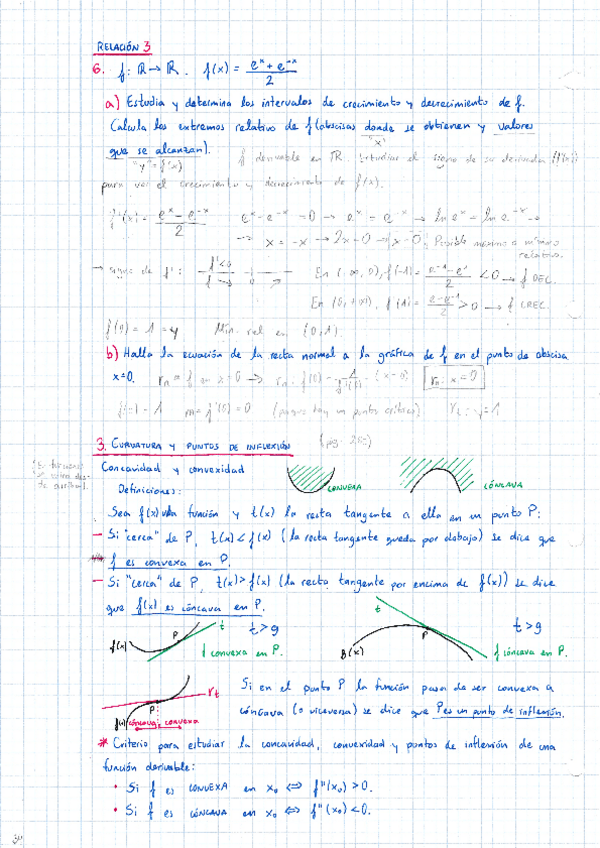 RELACIÓN 3
6. f: ℝ → ℝ. f(x) = (eˣ + e⁻ˣ)/2
a) Estudia y determina los intervalos de crecimiento y decrecimiento de f.
Calcula los extremos relativo de f (abscisas donde se obtienen y valores
"x"
que se alcanzan).
"y" = f(x)
f derivable en ℝ. Estudias el signo de su derivada (f'(x))
para ver el crecimiento y decrecimiento de f(x).
f'(x) = (eˣ - e⁻ˣ)/2 eˣ - e⁻ˣ = 0 → eˣ = e⁻ˣ → ln eˣ = ln e⁻ˣ →
→ x = -x → 2x = 0 → x = 0. Posible máximo o mínimo
relativo.
→ signo de f':
f'<0
f
0
En (-∞, 0), f'(-1) = (e⁻¹ - e¹)/2 < 0 → f DEC.
En (0, +∞), f'(1) = (e - e⁻¹)/2 > 0 → f CREC.
f(0) = 1 = y Min. rel en (0,1).
b) Halla la ecuación de la recta normal a la gráfica de f en el punto de abscisa
x=0.
f(0) - 1/f'(0) · (x-0)
rₙ: x = 0
f(0) = 1 m = f'(0) = 0 (porque hay un punto crítico) y=1
3. CURVATURA Y PUNTOS DE INFLEXIÓN
Concavidad y convexidad
CONVEXA
CÓNCAVA
Definiciones:
Sea f(x) una función y t(x) la recta tangente a ella en un punto P:
- Si "cerca" de P, t(x) < f(x) (la recta tangente queda por debajo) se dice que
f es convexa en P.
- Si "cerca" de P, t(x) > f(x) (la recta tangente por encima de f(x)) se dice
que f(x) es cóncava en P.
f(x) P t t > g
f convexa en P.
t
g(x) P t > g
f cóncava en P.
P rt
f(x) cóncava convexa
Si en el punto P la función pasa de ser convexa a
cóncava (o viceversa) se dice que P es un punto de inflexión.
* Criterio para estudiar la concavidad, convexidad y puntos de inflexión de una
función derivable:
• Si f es CONVEXA en x₀ ⇔ f''(x₀) > 0.
• Si f es CÓNCAVA en x₀ ⇔ f''(x₀) < 0.